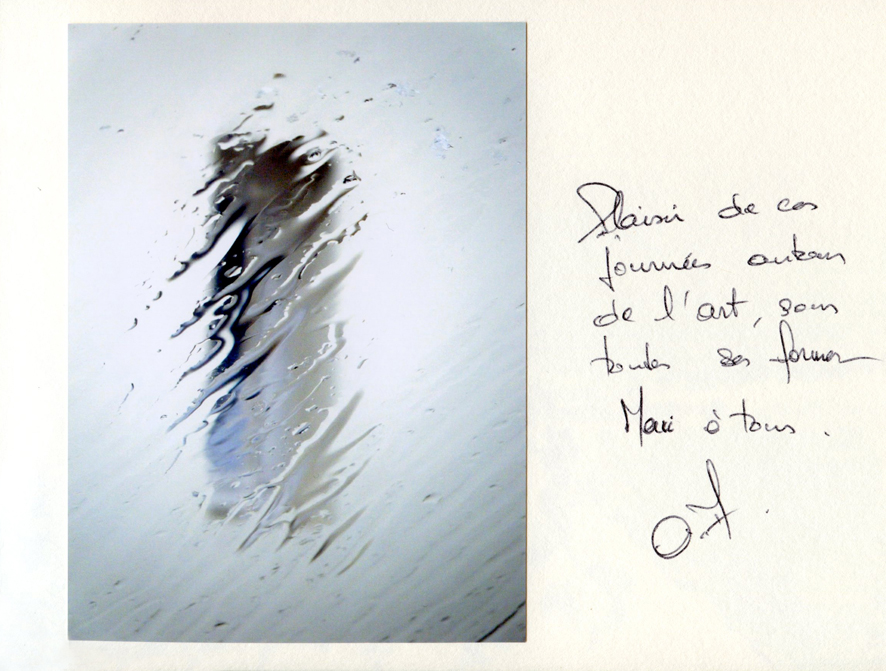 Plaisir de ces
journées autour
de l'art, sous
toutes ses formes
Merci à tous.
O.F.